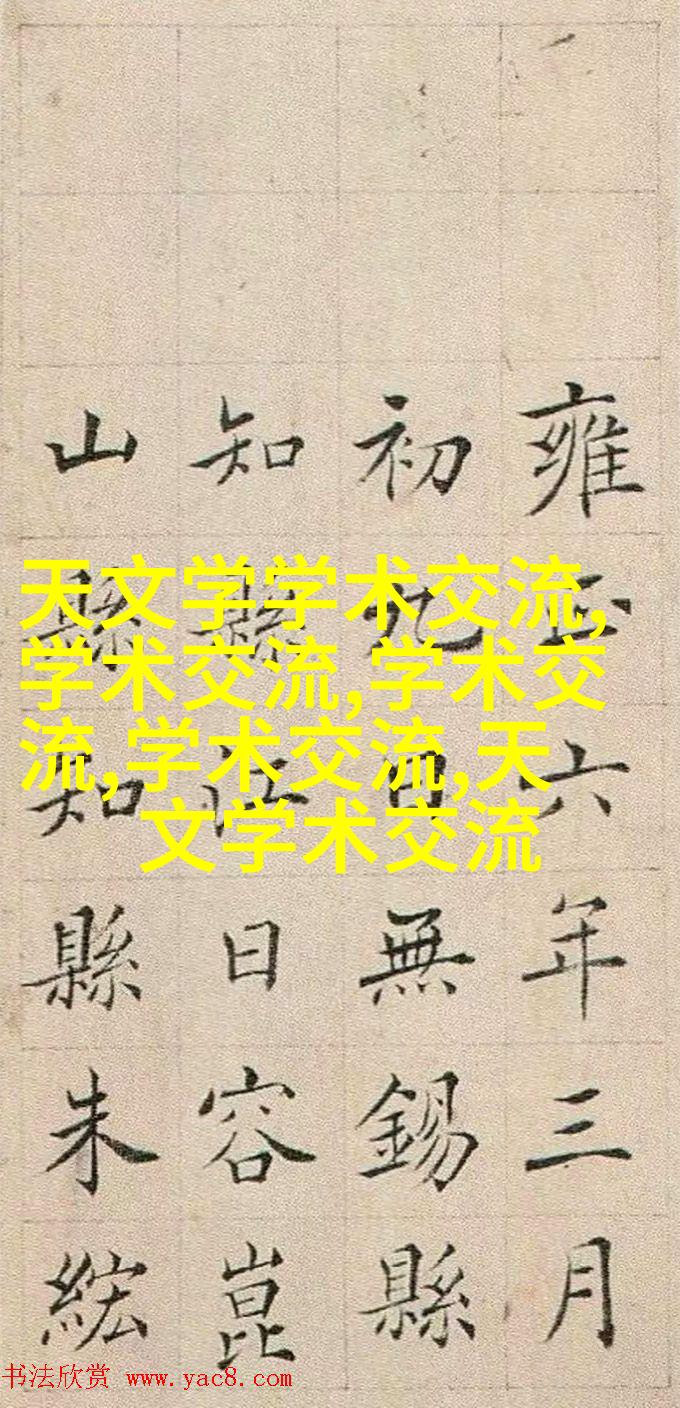 雍正六年三月
初九日無錫縣
知縣江日容崑
山縣知縣朱綋
天文学学术交流,
学术交流,学术交
流,学术交流,天
文学术交流
书法欣赏 www.yac8.com